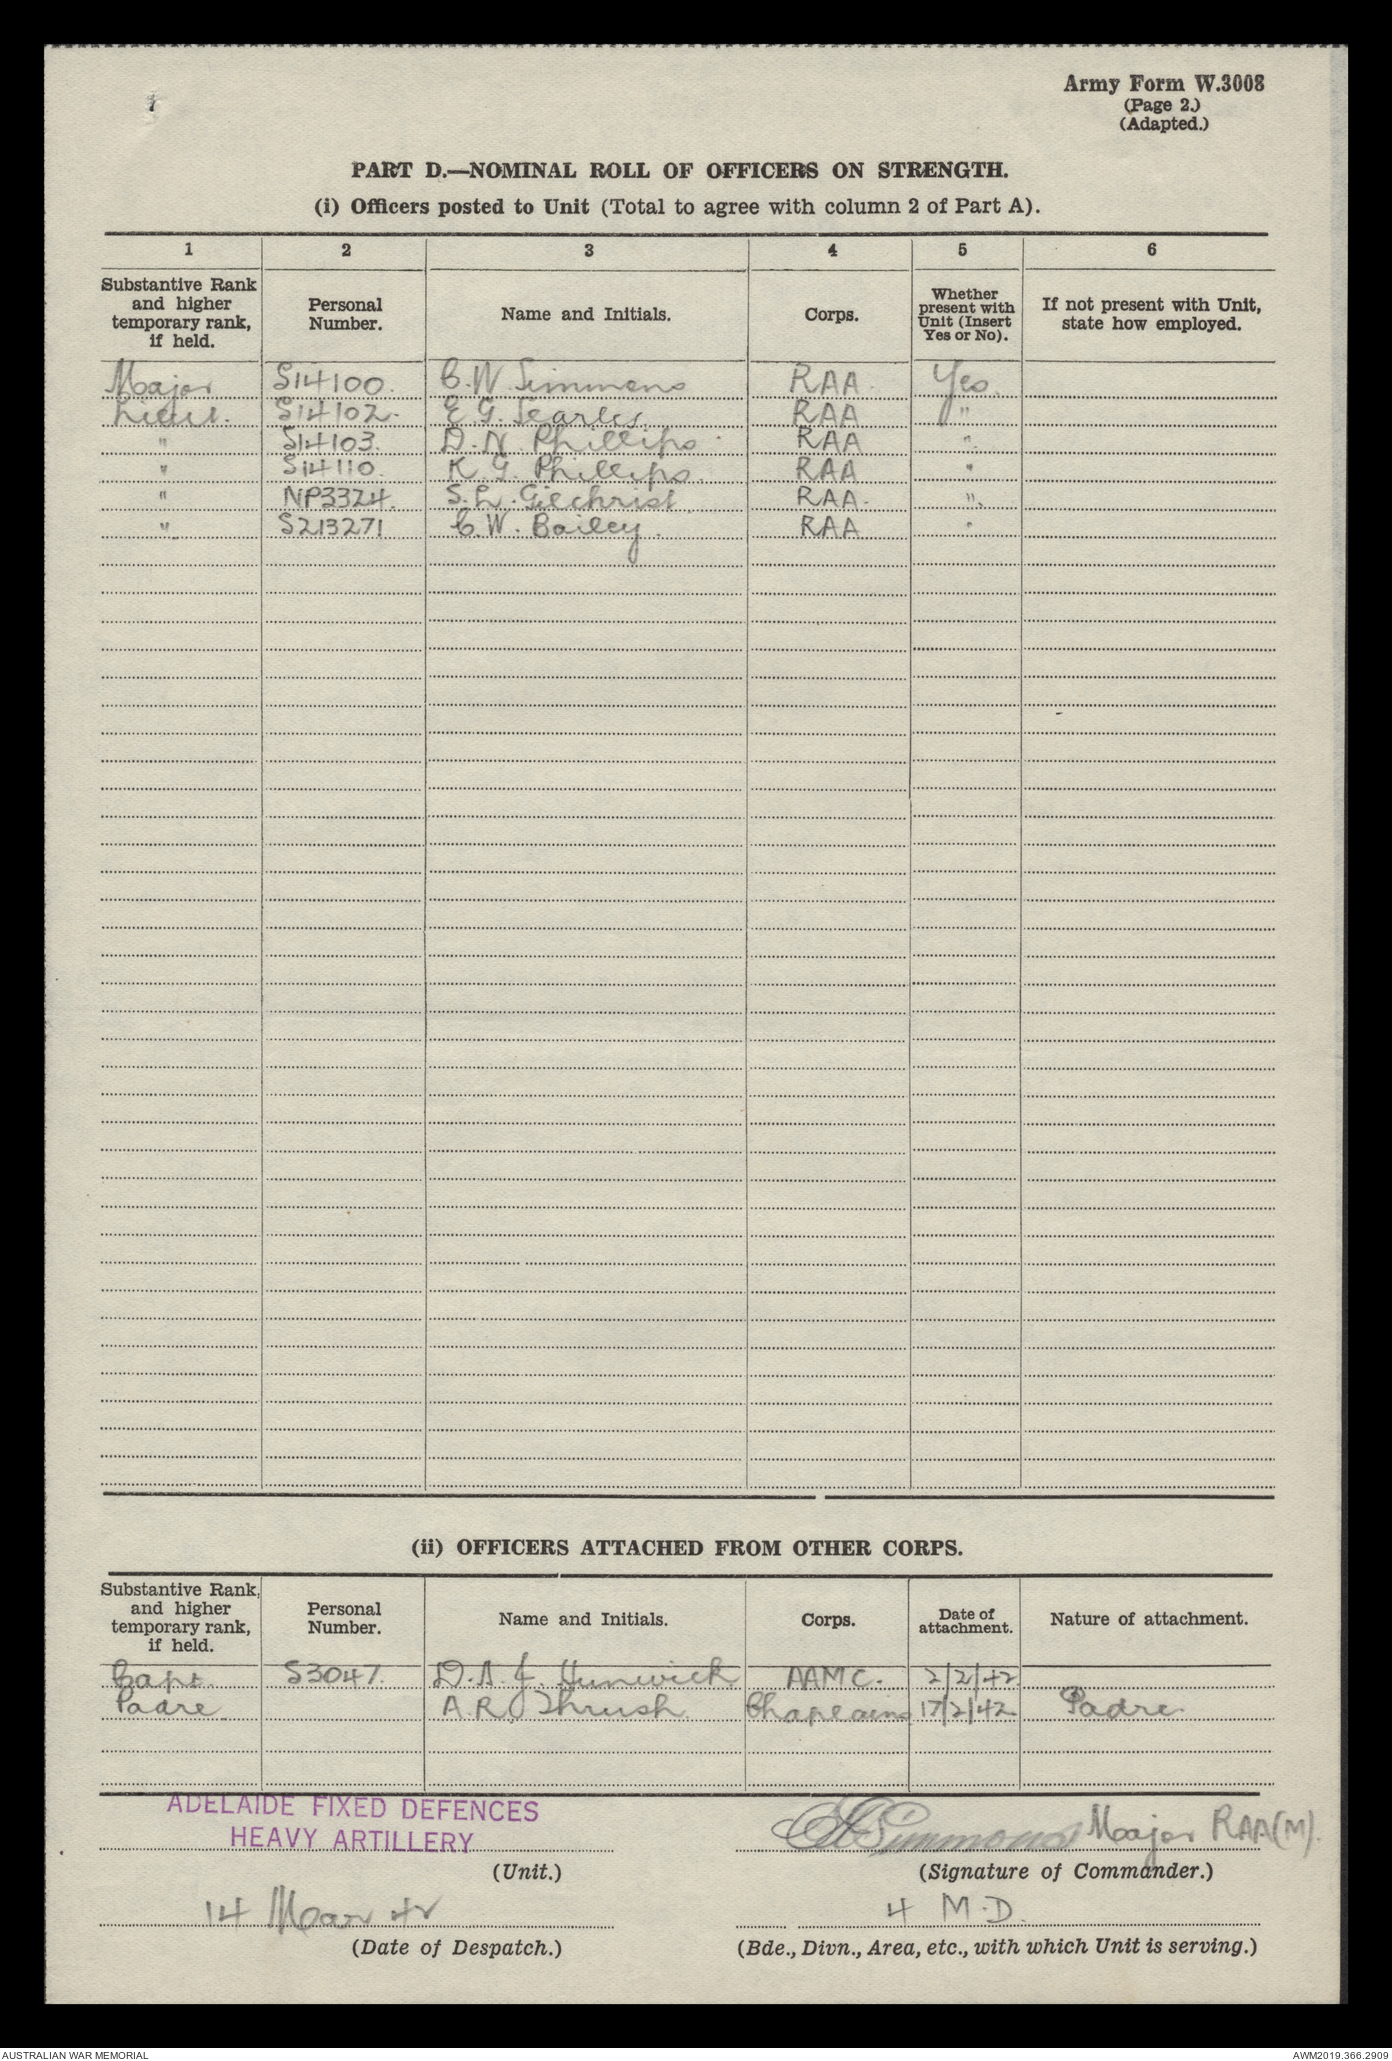 Army Form W.3008
(Page 2.)
(Adapted.)
PART D.—NOMINAL ROLL OF OFFICERS ON STRENGTH.
(i) Officers posted to Unit (Total to agree with column 2 of Part A).
1 2 3 4 5 6
Substantive Rank and higher temporary rank, if held. Personal Number. Name and Initials. Corps. Whether present with Unit (Insert Yes or No). If not present with Unit, state how employed.
Major S14100. C.W. Simmons RAA. Yes.
Lieut. S14102. E.G. Searles RAA "
" S14103. D.N. Phillips. RAA "
" S14110. K.G. Phillips. RAA "
" NP3324. S.L. Gilchrist. RAA. "
" S213271 C.W. Bailey. RAA "
(ii) OFFICERS ATTACHED FROM OTHER CORPS.
Substantive Rank, and higher temporary rank, if held. Personal Number. Name and Initials. Corps. Date of attachment. Nature of attachment.
Capt. S3047. D.A.J. Hunwick AAMC. 2/2/42
Padre A.R. Thrush. Chaplains 17/2/42 Padre.
ADELAIDE FIXED DEFENCES
HEAVY ARTILLERY
Simmons Major RAA(M).
(Unit.) (Signature of Commander.)
14 Mar 42 4 M.D.
(Date of Despatch.) (Bde., Divn., Area, etc., with which Unit is serving.)
AUSTRALIAN WAR MEMORIAL AWM2019.366.2909